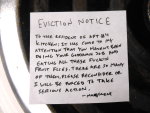 EVICTION NOTICE
TO THE RESIDENT OF APT B'S
KITCHEN: IT HAS COME TO MY
ATTENTION THAT YOU HAVEN'T BEEN
DOING YOUR GODDAMN JOB AND
EATING ALL THESE FUCKIN'
FRUIT FLIES. THERE ARE SO MANY
OF THEM. PLEASE RECONSIDER OR
I WILL BE FORCED TO TAKE
SERIOUS ACTION.
- MANAGEMENT